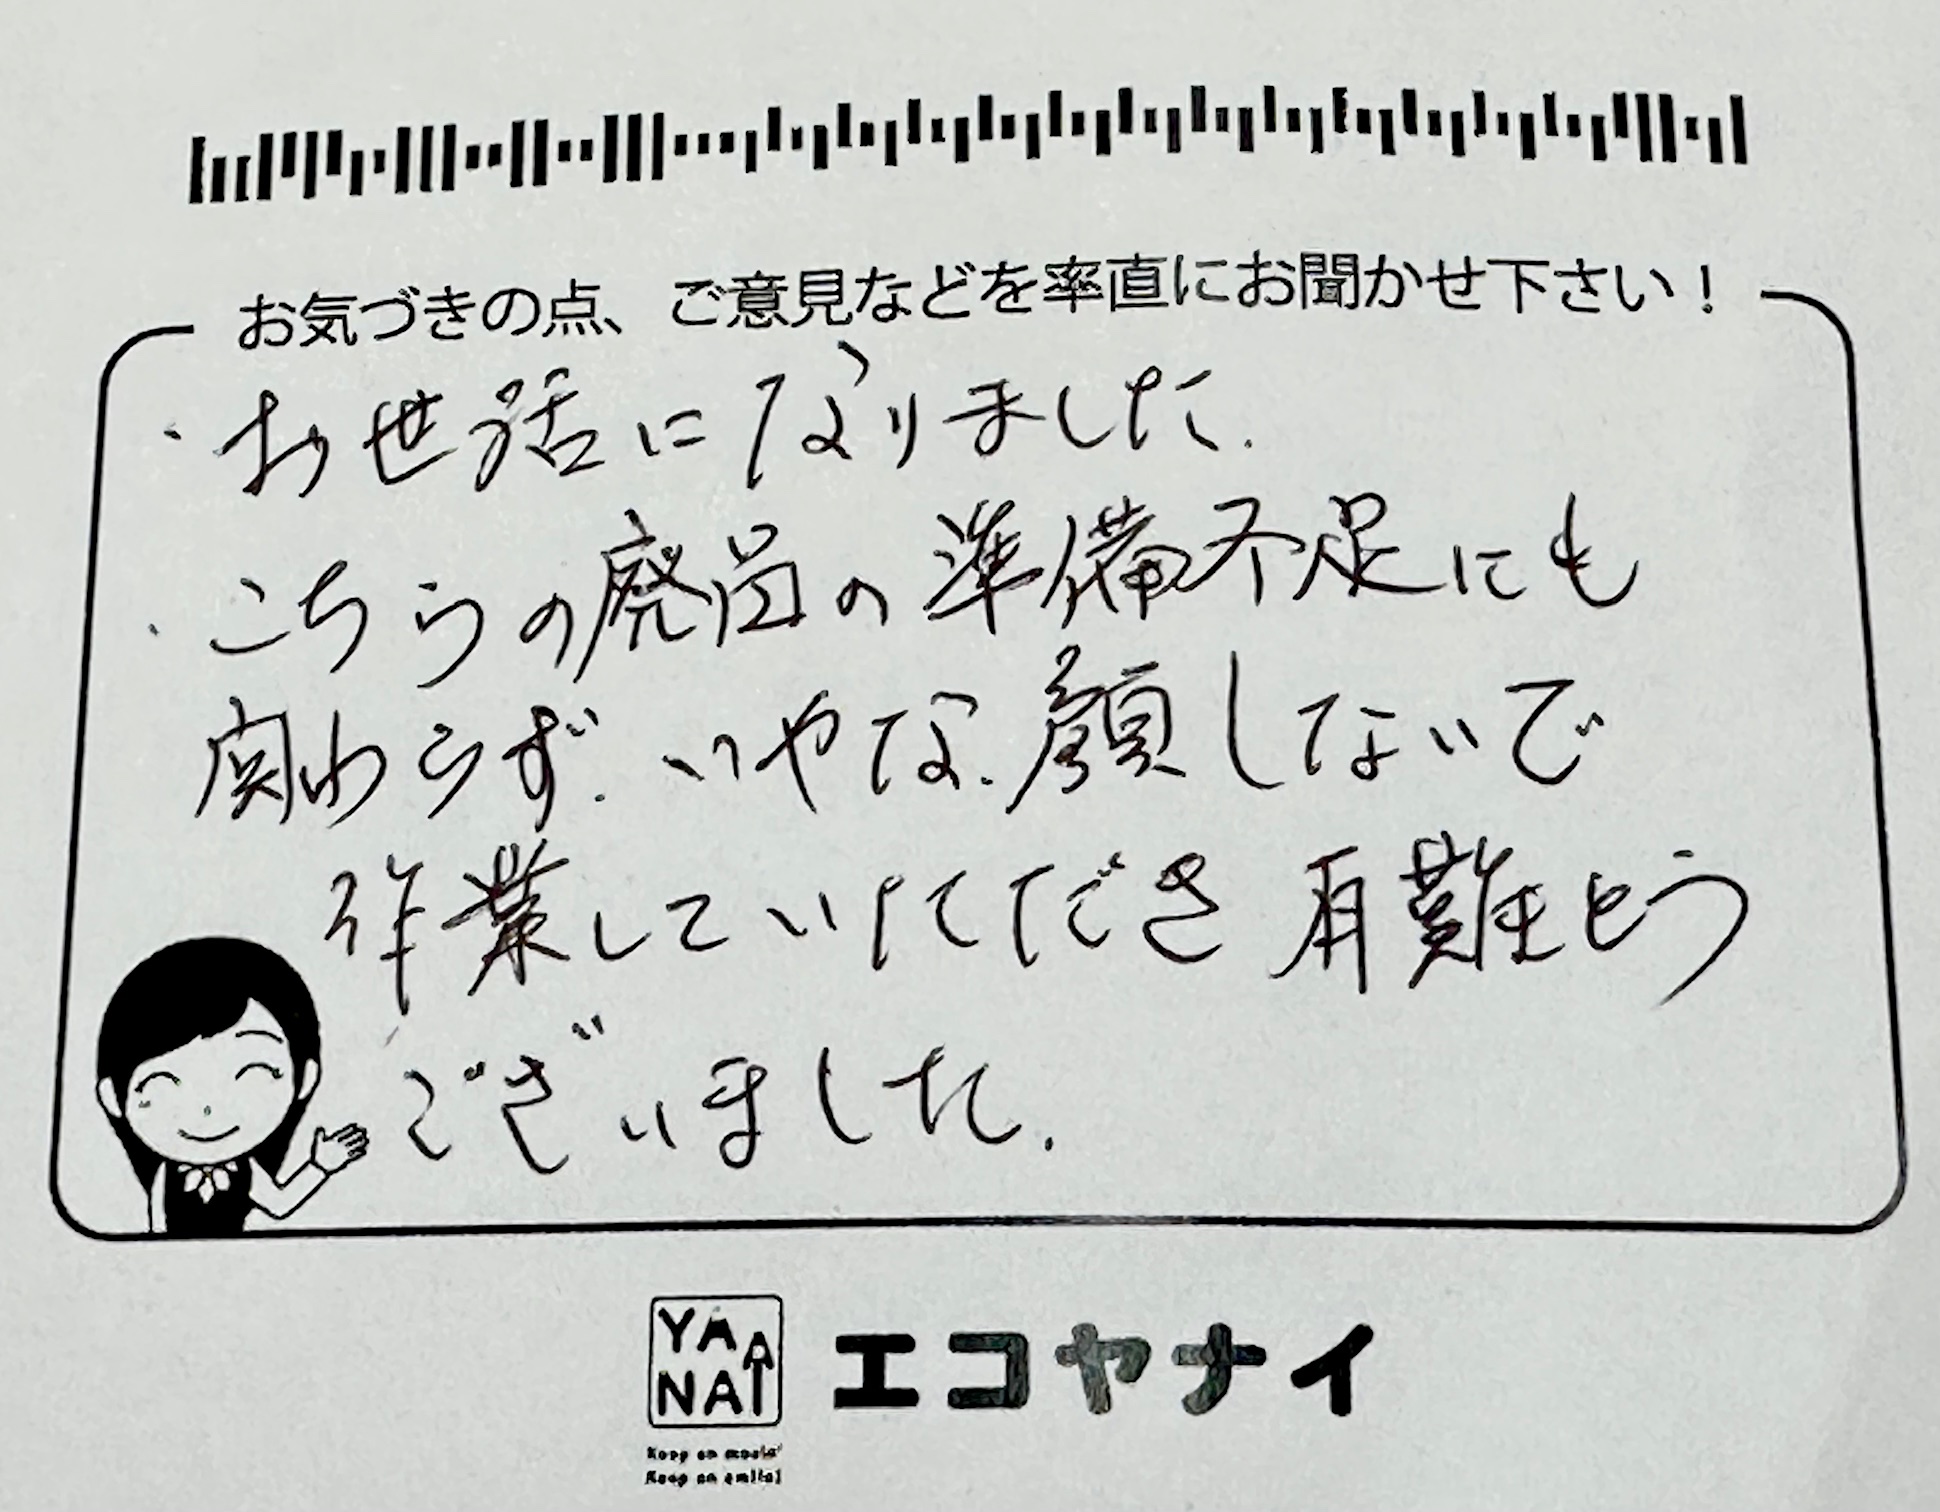 お気づきの点、ご意見などを率直にお聞かせ下さい！
・お世話になりました.
・こちらの廃品の準備不足にも
関わらず.いやな.顔しないで
作業していただき有難とう
ございました.
YANAI
エコヤナイ
Keep on movin'
Keep on smilin'